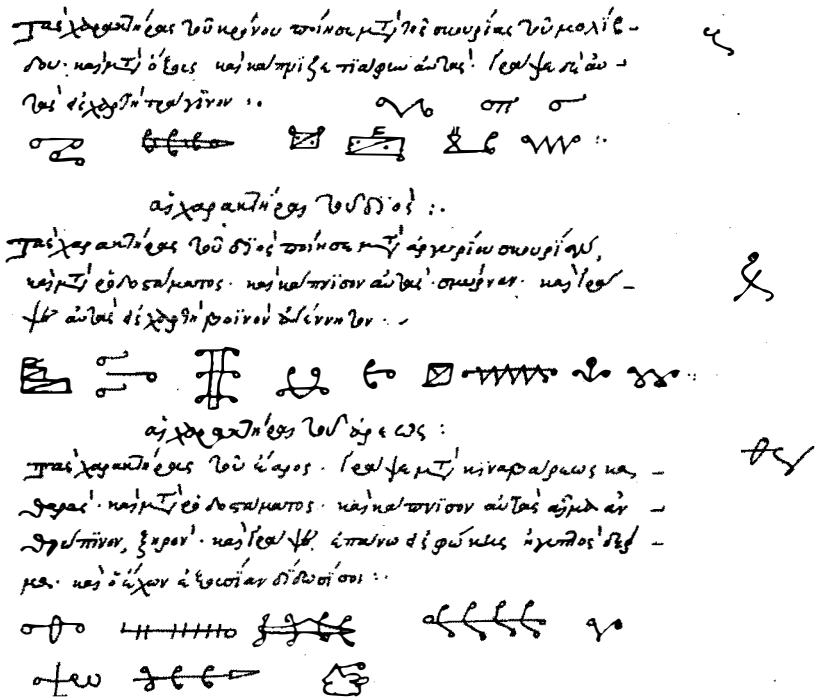 Τὰς χαρακτήρας τοῦ κρόνου ποίησε μετὰ τῆς σκουρίας τοῦ μολίβ-
δου· καὶ μετὰ ὄξους καὶ κάπνιζε τιάφην αὐτάς· γράψε δὲ αὐ-
τὰς εἰς χαρτὴ τραγίνον :·
αἱ χαρακτήρες τοῦ διός :·
Τὰς χαρακτήρας τοῦ διὸς ποίησε μετὰ ἀργυρίου σκουρίαν,
καὶ μετὰ ῥοδοστάματος· καὶ κάπνισον αὐτὰς· σμύρναν· καὶ γρά-
ψε αὐτὰς εἰς χαρτὴ βοϊνὸν ἀγέννητον·
αἱ χαρακτήρες τοῦ ἄρεως :
Τὰς χαρακτήρας τοῦ ἄρεος· γράψε μετὰ κιναβάρεως κα-
θαρᾶς· καὶ μετὰ ῥοδοστάματος· καὶ κάπνισον αὐτὰς αἷμα ἀν-
θρώπινον, ξηρόν· καὶ γράψε ἐπάνω εἰς φώκιας ἢ γυπὸς δέρ-
μα· καὶ ὁ ἔχων ἐξουσίαν δίδωσί σοι :·